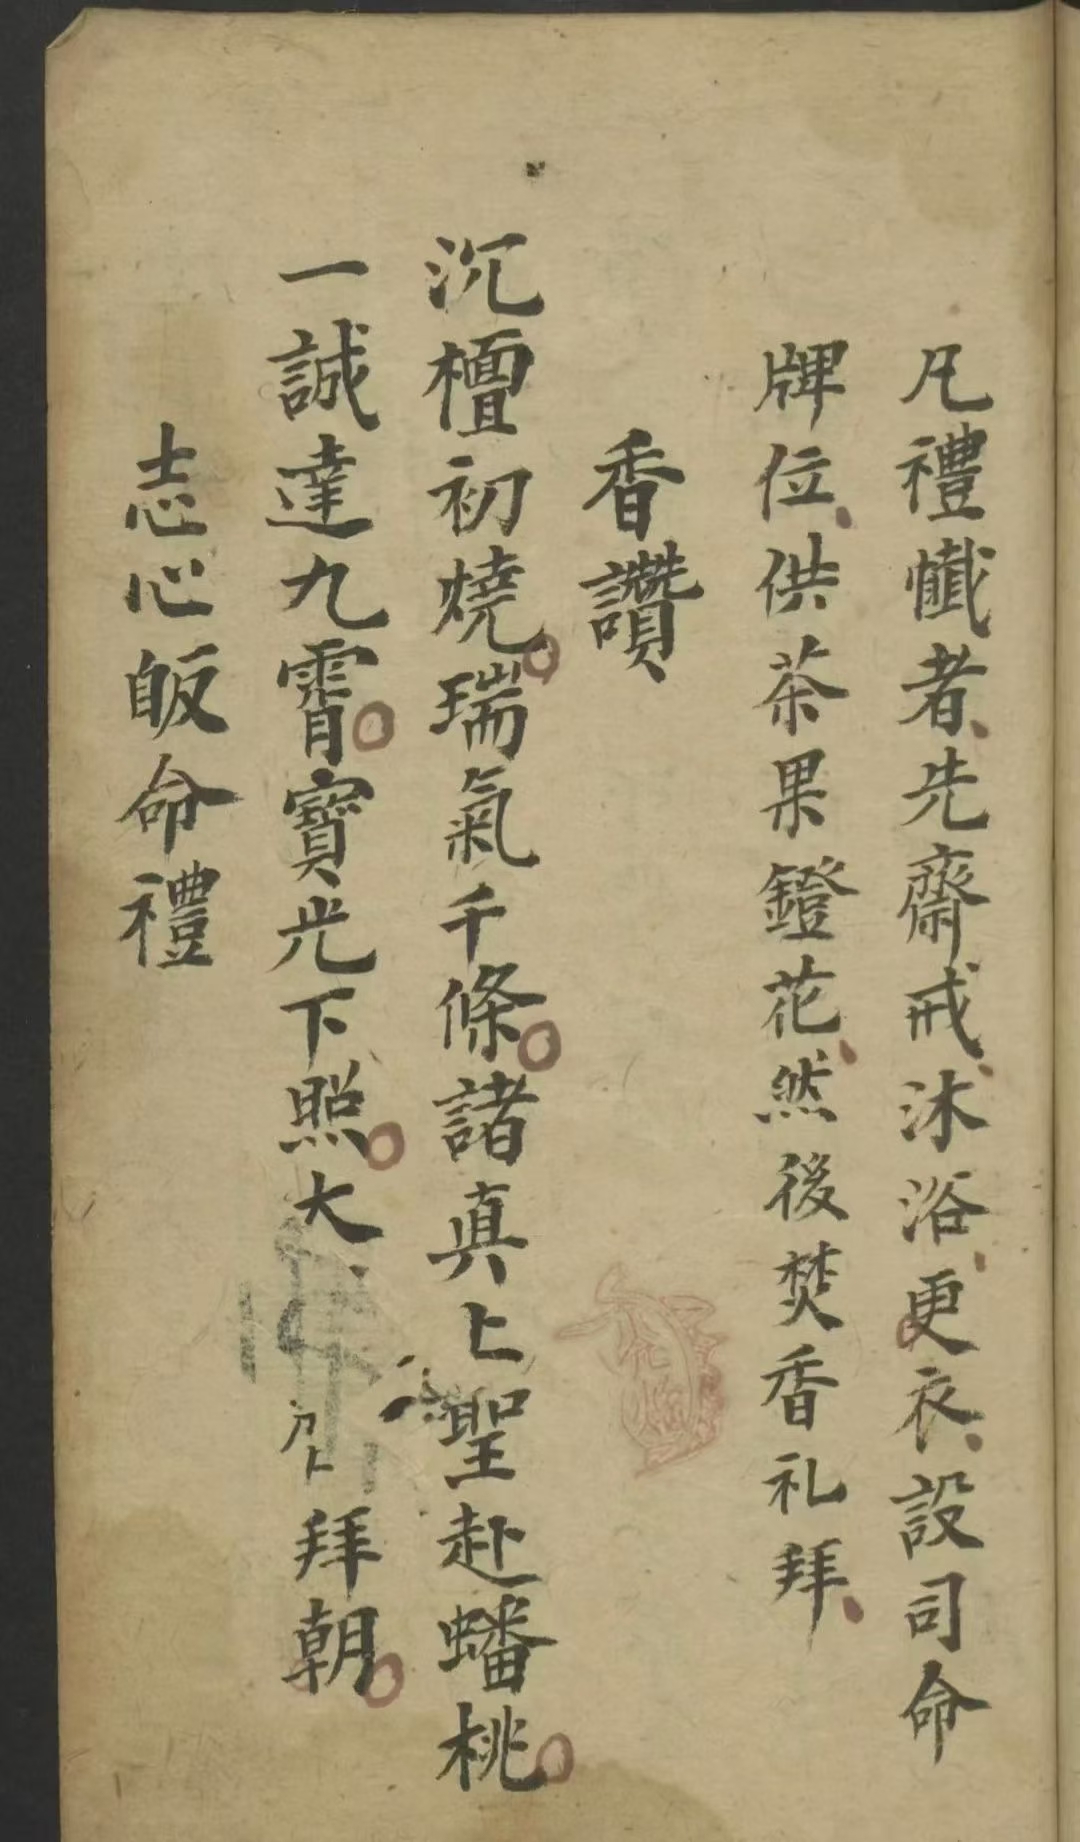 凡禮懺者先齋戒沐浴更衣設司命
牌位供茶果鐙花然後焚香礼拜
香讚
沉檀初燒瑞氣千條諸真上聖赴蟠桃
一誠達九霄寶光下照大拜朝
志心皈命禮